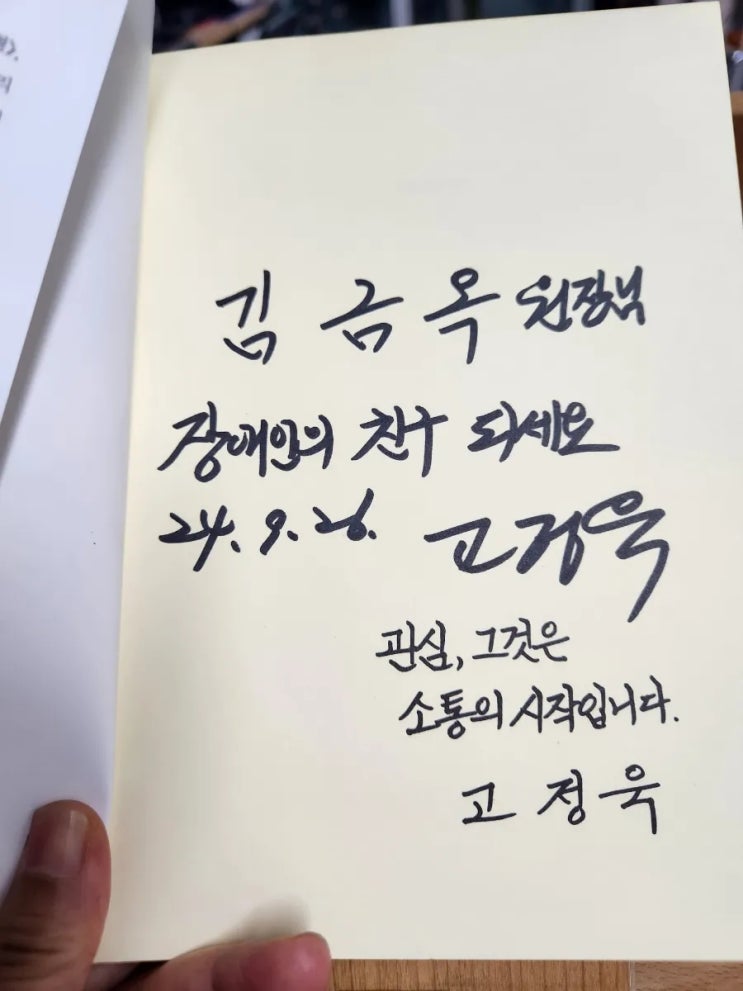 김 금 옥 원장님
장애인의 친구 되세요
24. 9. 26. 고정욱
관심, 그것은
소통의 시작입니다.
고 정 욱